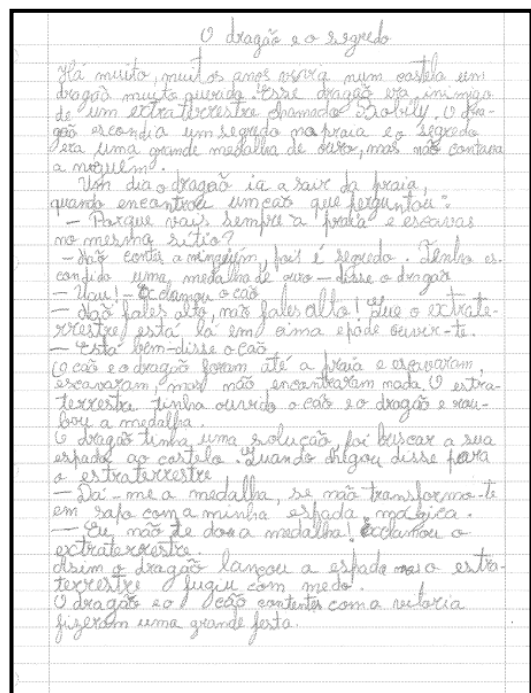 O dragão e o segredo
Há muito, muitos anos vivia num castelo um
dragão muito querido. Esse dragão era inimigo
de um extraterrestre chamado Bobily. O dra-
gão escondia um segredo na praia e o segredo
era uma grande medalha de ouro, mas não contava
a niguém.
Um dia o dragão ia a sair da praia,
quando encontrou um cão que perguntou:
— Porque vais sempre à praia e escavas
no mesmo sítio?
— Não contes a ninguém, pois é segredo. Tenho es-
condido uma medalha de ouro — disse o dragão
— Uau! — Exclamou o cão
— Não fales alto, não fales alto! Que o extrate-
rrestre está lá em cima e pode ouvir-te.
— Está bem — disse o cão
O cão e o dragão foram até a praia e escavaram,
escavaram, mas não encontraram nada. O estra-
terrestre tinha ouvido o cão e o dragão e rou-
bou a medalha.
O dragão tinha uma solução foi buscar a sua
espada ao castelo. Quando chegou disse para
o estraterrestre
— Dá-me a medalha, se não transformo-te
em sapo com a minha espada mágica.
— Eu não te dou a medalha! exclamou o
extraterrestre.
Assim o dragão lançou a espada o estra-
terrestre fugiu com medo.
O dragão e o cão contentes com a vitoria
fizeram uma grande festa.